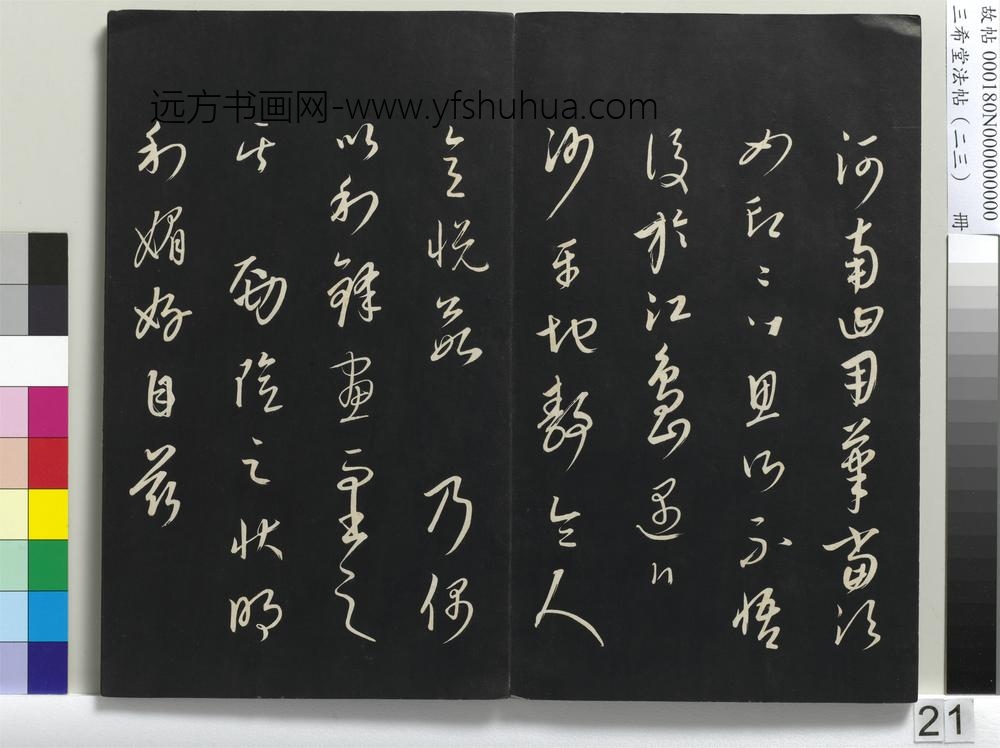 远方书画网-www.yfshuhua.com
河南曰用筆當須
如印〻思所不悟
後於江島遇
沙平地静令人
意悅 乃偶
以利鋒畫而書之
其勁險之狀明
利媚好自茲
故帖 000180N000000000
三希堂法帖(二三) 冊
21